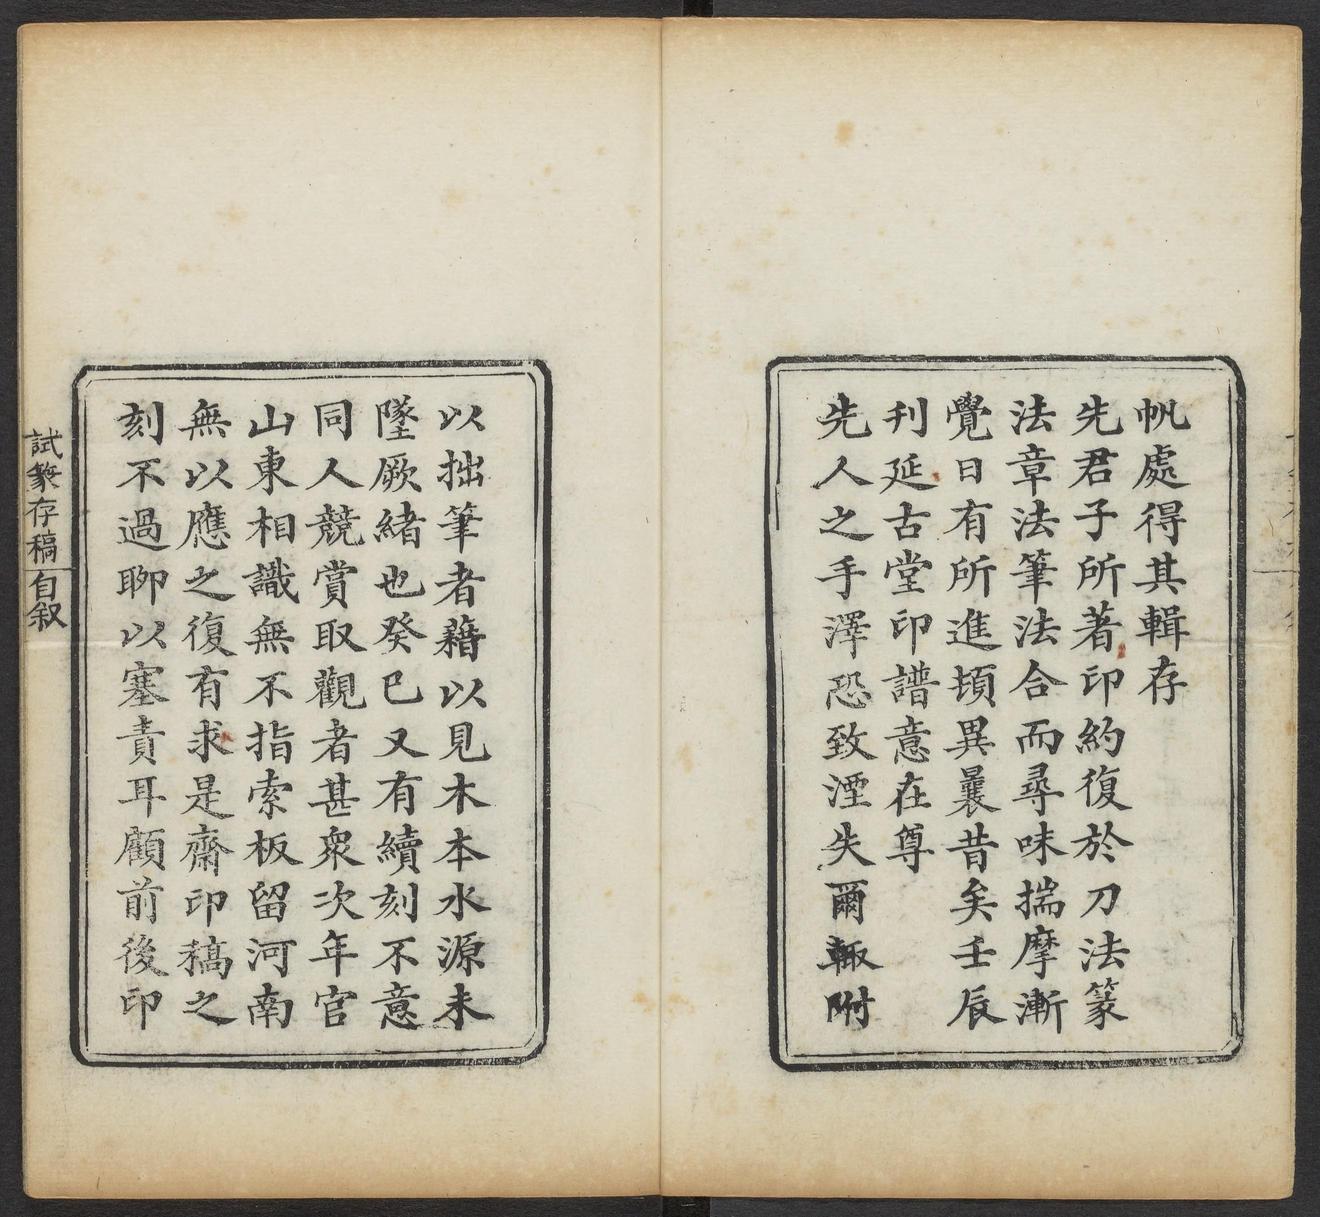 帆處得其輯存
先君子所著印約復於刀法篆
法章法筆法合而尋味揣摩漸
覺日有所進頃異曩昔矣壬辰
刊延古堂印譜意在尊
先人之手澤恐致湮失爾輒附
以拙筆者藉以見木本水源未
墜厥緒也癸巳又有續刻不意
同人競賞取觀者甚眾次年官
山東相識無不指索板留河南
無以應之復有求是齋印稿之
刻不過聊以塞責耳顧前後印
試篆存稿 自叙